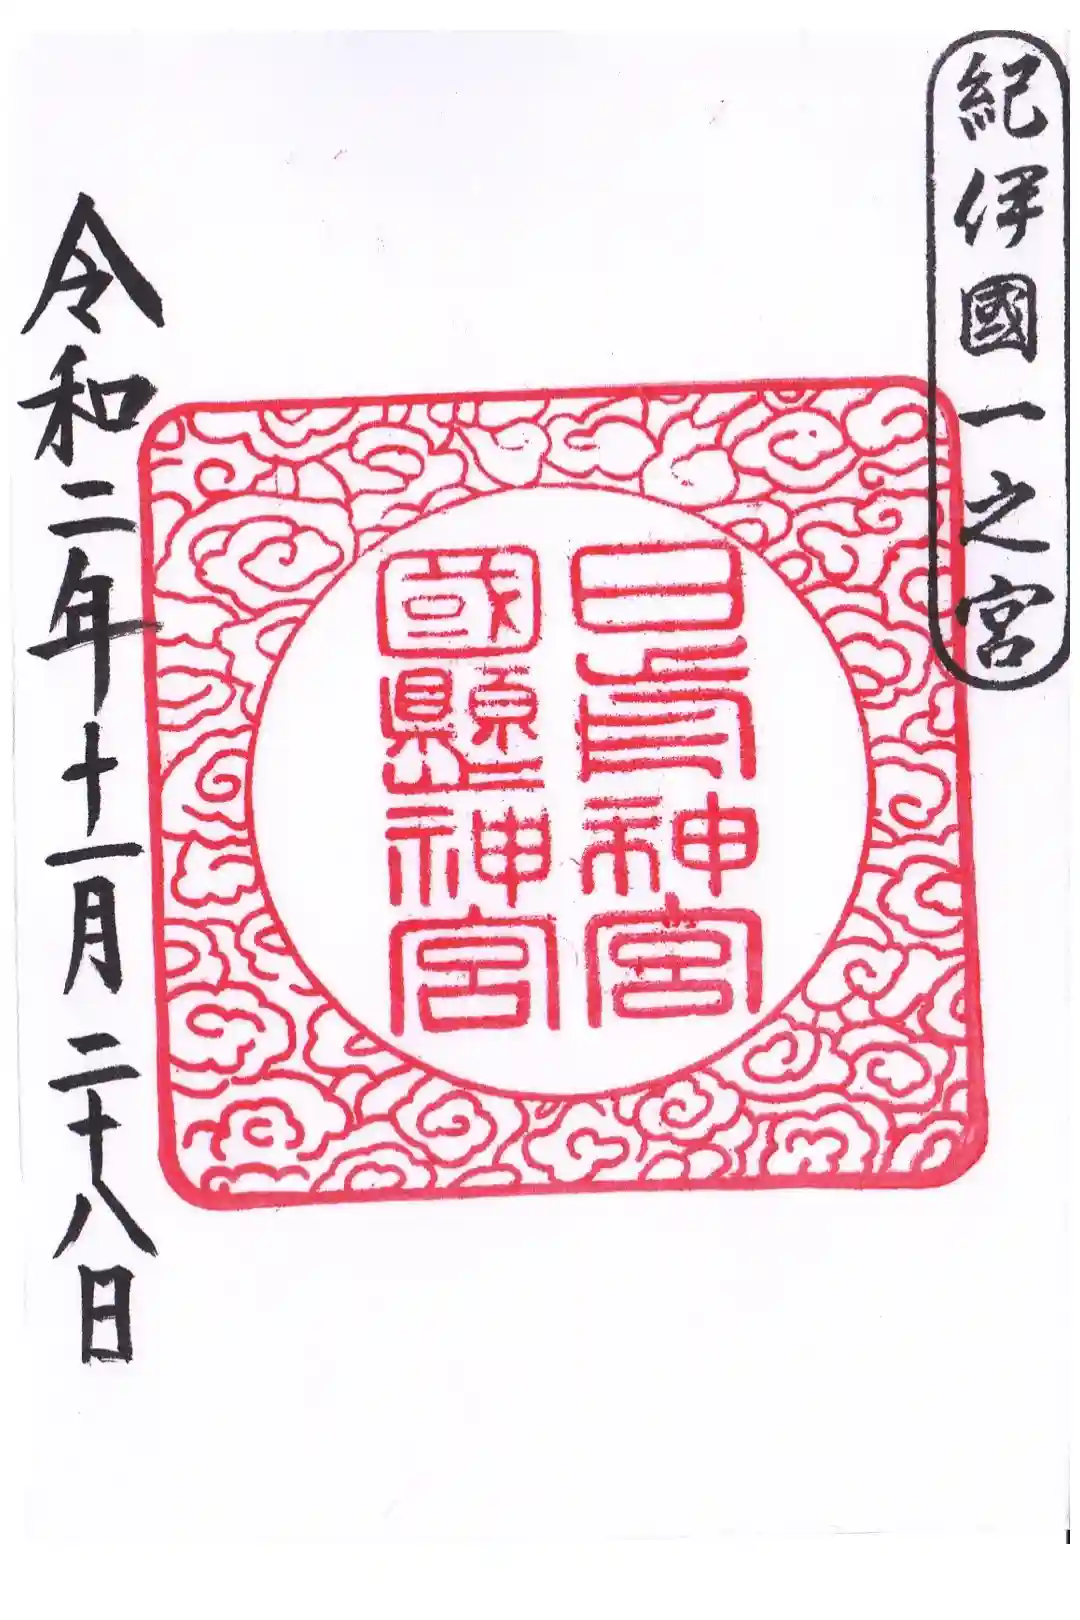 紀伊國一之宮
日前神宮
國懸神宮
令和二年十一月二十八日